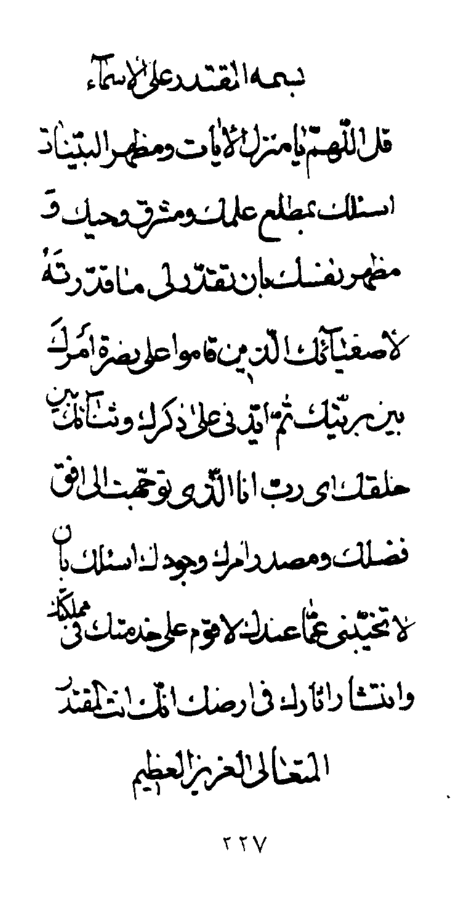 بسمه المقتدر على الاسمآء
قل اللّهمّ يا منزل الآيات و مظهر البيّنات
اسئلك بمطلع علمك و مشرق وحيك و
مظهر نفسك بان تقدّر لى ما قدّرته
لأصفيآئك الّذين قاموا على نصرة امرك
بين بريّتك ثمّ ايّدنى على ذكرك و ثنآئك بين
خلقك اى ربّ انا الّذى توجّهت الى افق
فضلك و مصدر امرك و جودك اسئلك بان
لا تخيّبنى عمّا عندك لاقوم على خدمتك فى مملكتك
و انتشار اثارك فى ارضك انّك انت المقتدر
المتعالى العزيز العظيم
٢٢٧